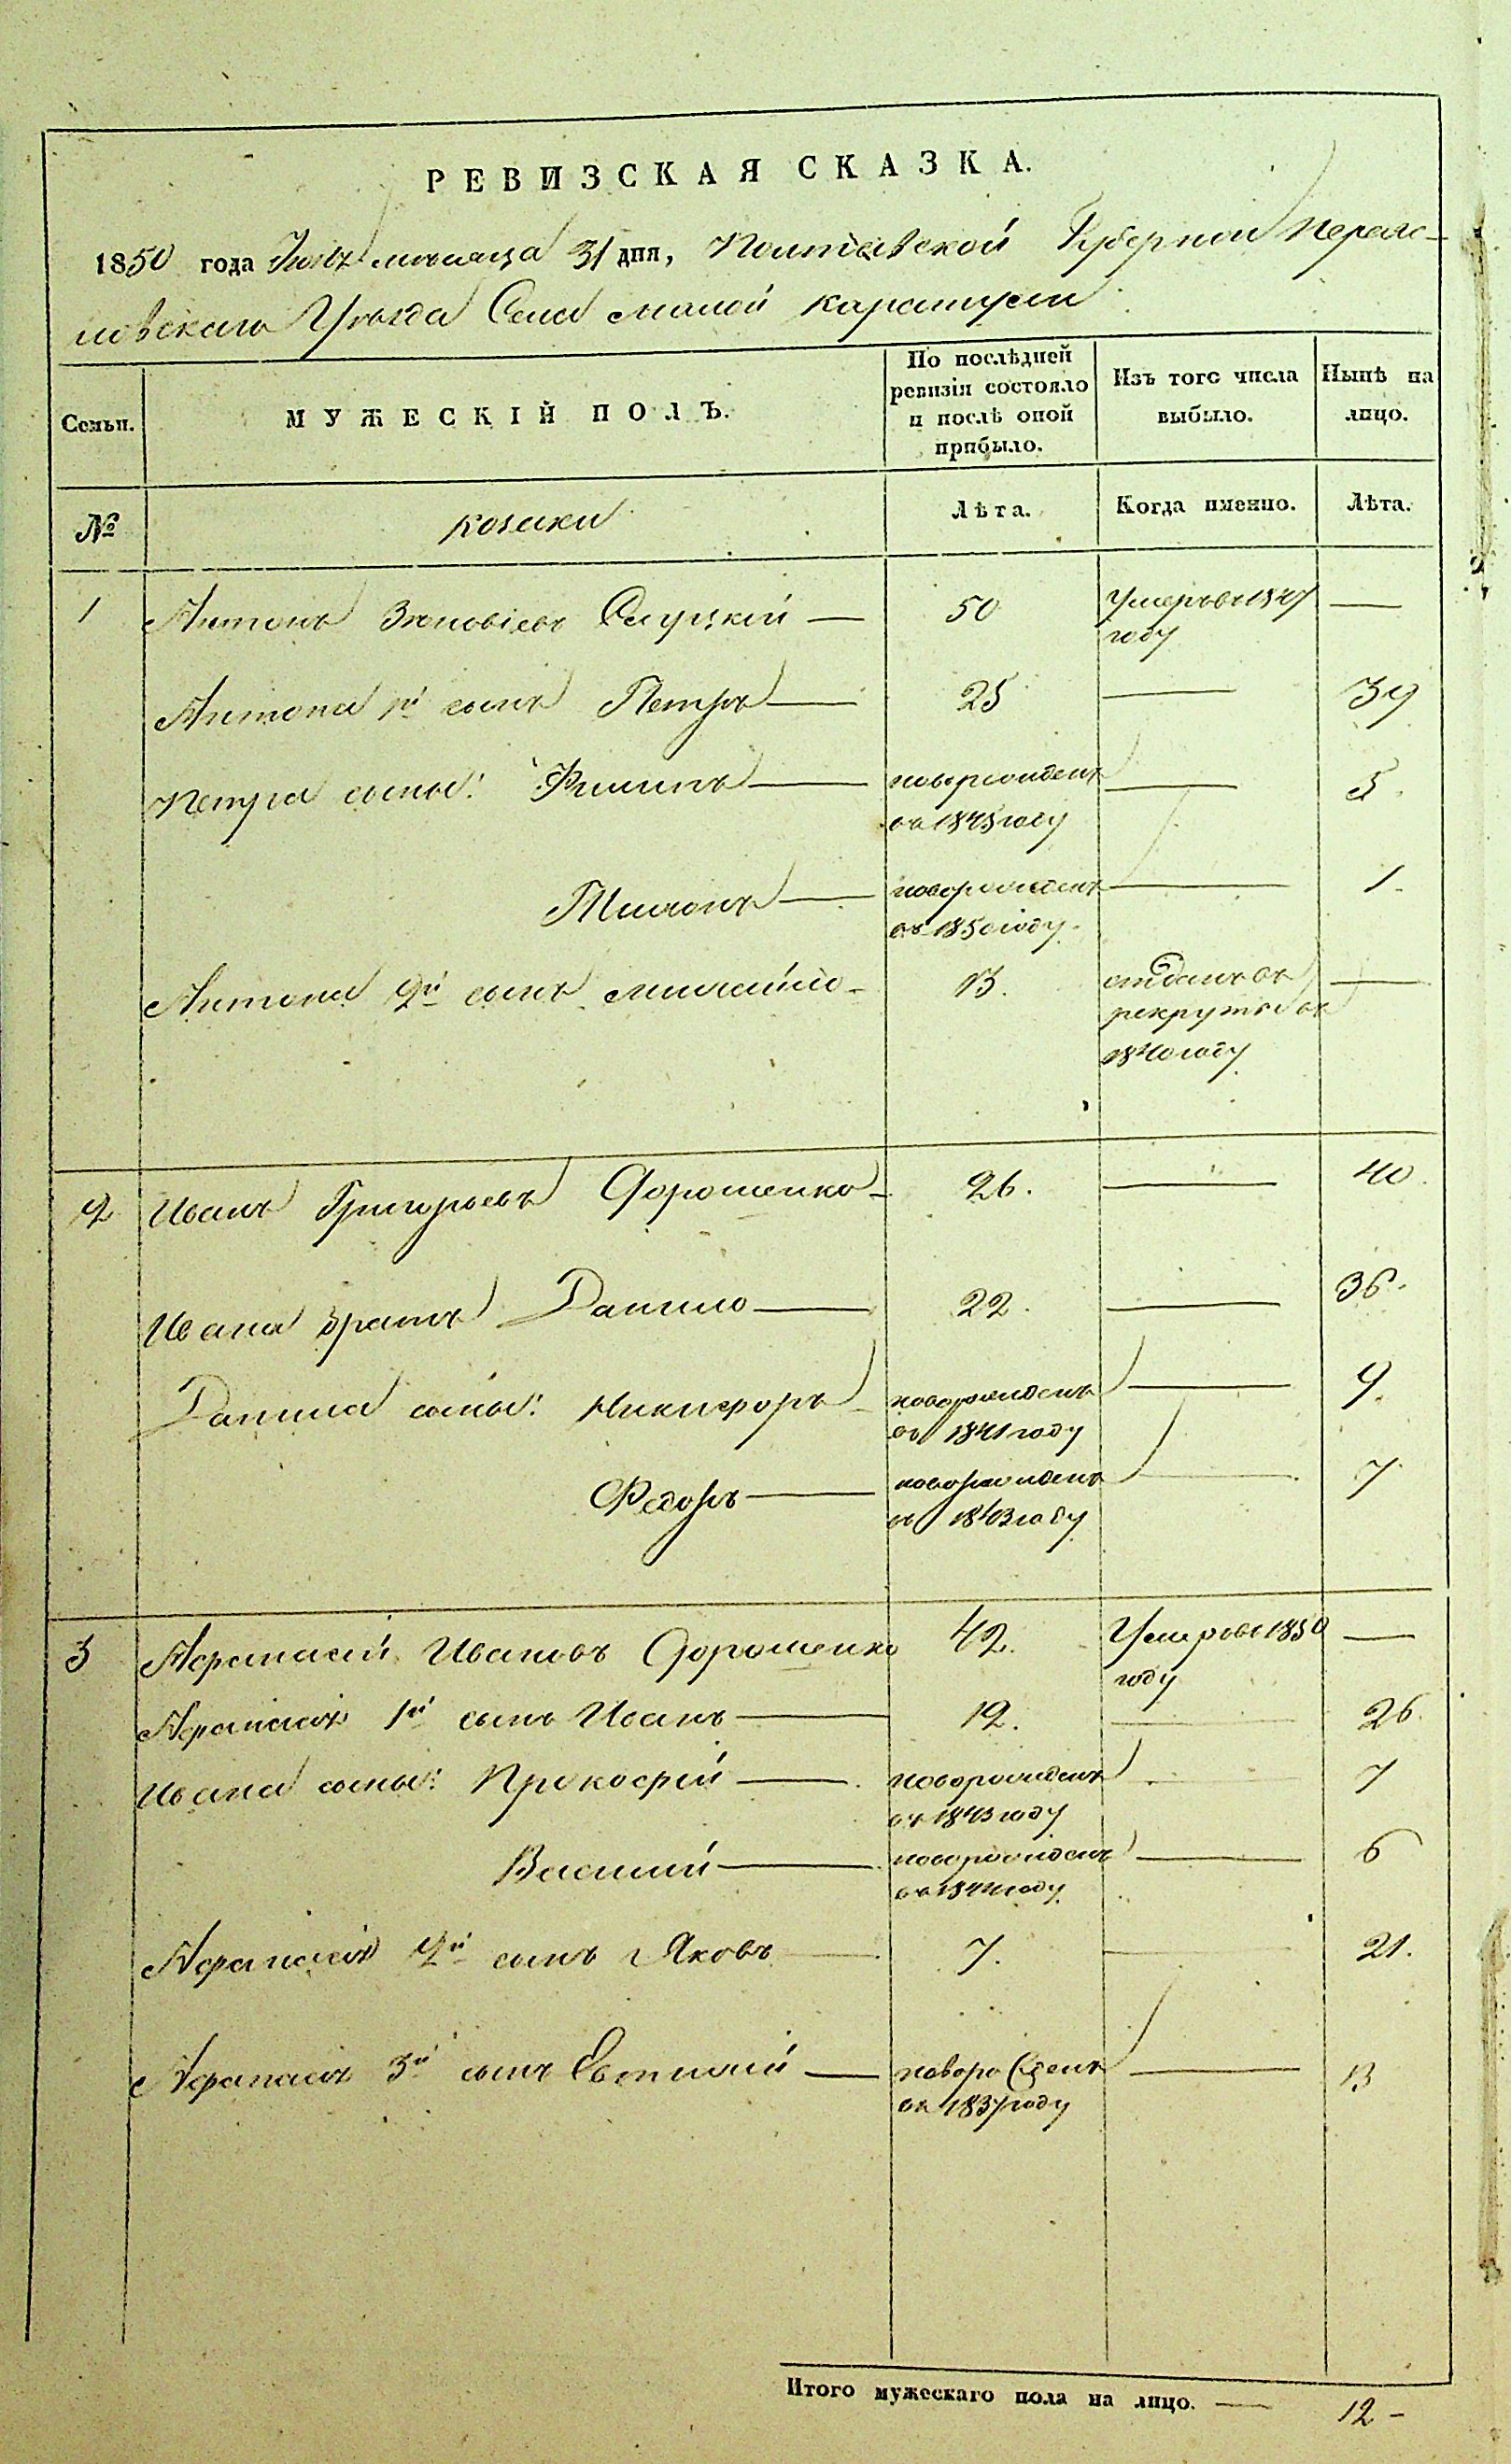 РЕВИЗСКАЯ СКАЗКА.
1850 года Іюля месяца 31 дня, Полтавской Губерніи Переяс-
ловскаго Уезда Села малой каратули
Семьи. МУЖЕСКІЙ ПОЛЪ. По послѣдней ревизіи состояло и послѣ оной прибыло. Изъ того числа выбыло. Нынѣ на лицо.
№ козаки Лѣта. Когда именно. Лѣта.
1 Антонъ Зѣновіевъ Слуцкій — 50 Умеръ въ 1847 году —
Антона 1й сынъ Петръ — 25 — 39
Петра сыны: Филипъ — новорожденъ въ 1845 году — 5.
Тимонъ — новорожденъ въ 1850 году. — 1.
Антона 2й сынъ михайло - 13. отданъ въ рекруты въ 1840 году —
2 Иванъ Григорьевъ Дорошенко - 26. — 40.
Ивана братъ Данило — 22. — 36.
Данила сыны: Никифоръ - новорожденъ въ 1841 году — 9.
Федоръ — новорожденъ въ 1843 году — 7
3 Афанасий Ивановъ Дорошенко 42. Умеръ въ 1850 году —
Афанасія 1й сынъ Иванъ — 12. — 26.
Ивана сыны: Прокофий — новорожденъ въ 1843 году — 7
Василий — новорожденъ въ 1844 году — 6
Афанасія 2й сынъ Яковъ — 7. — 21.
Афанасія 3й сынъ Евтимий — новорожденъ въ 1837 году — 13
Итого мужескаго пола на лицо. — 12 -